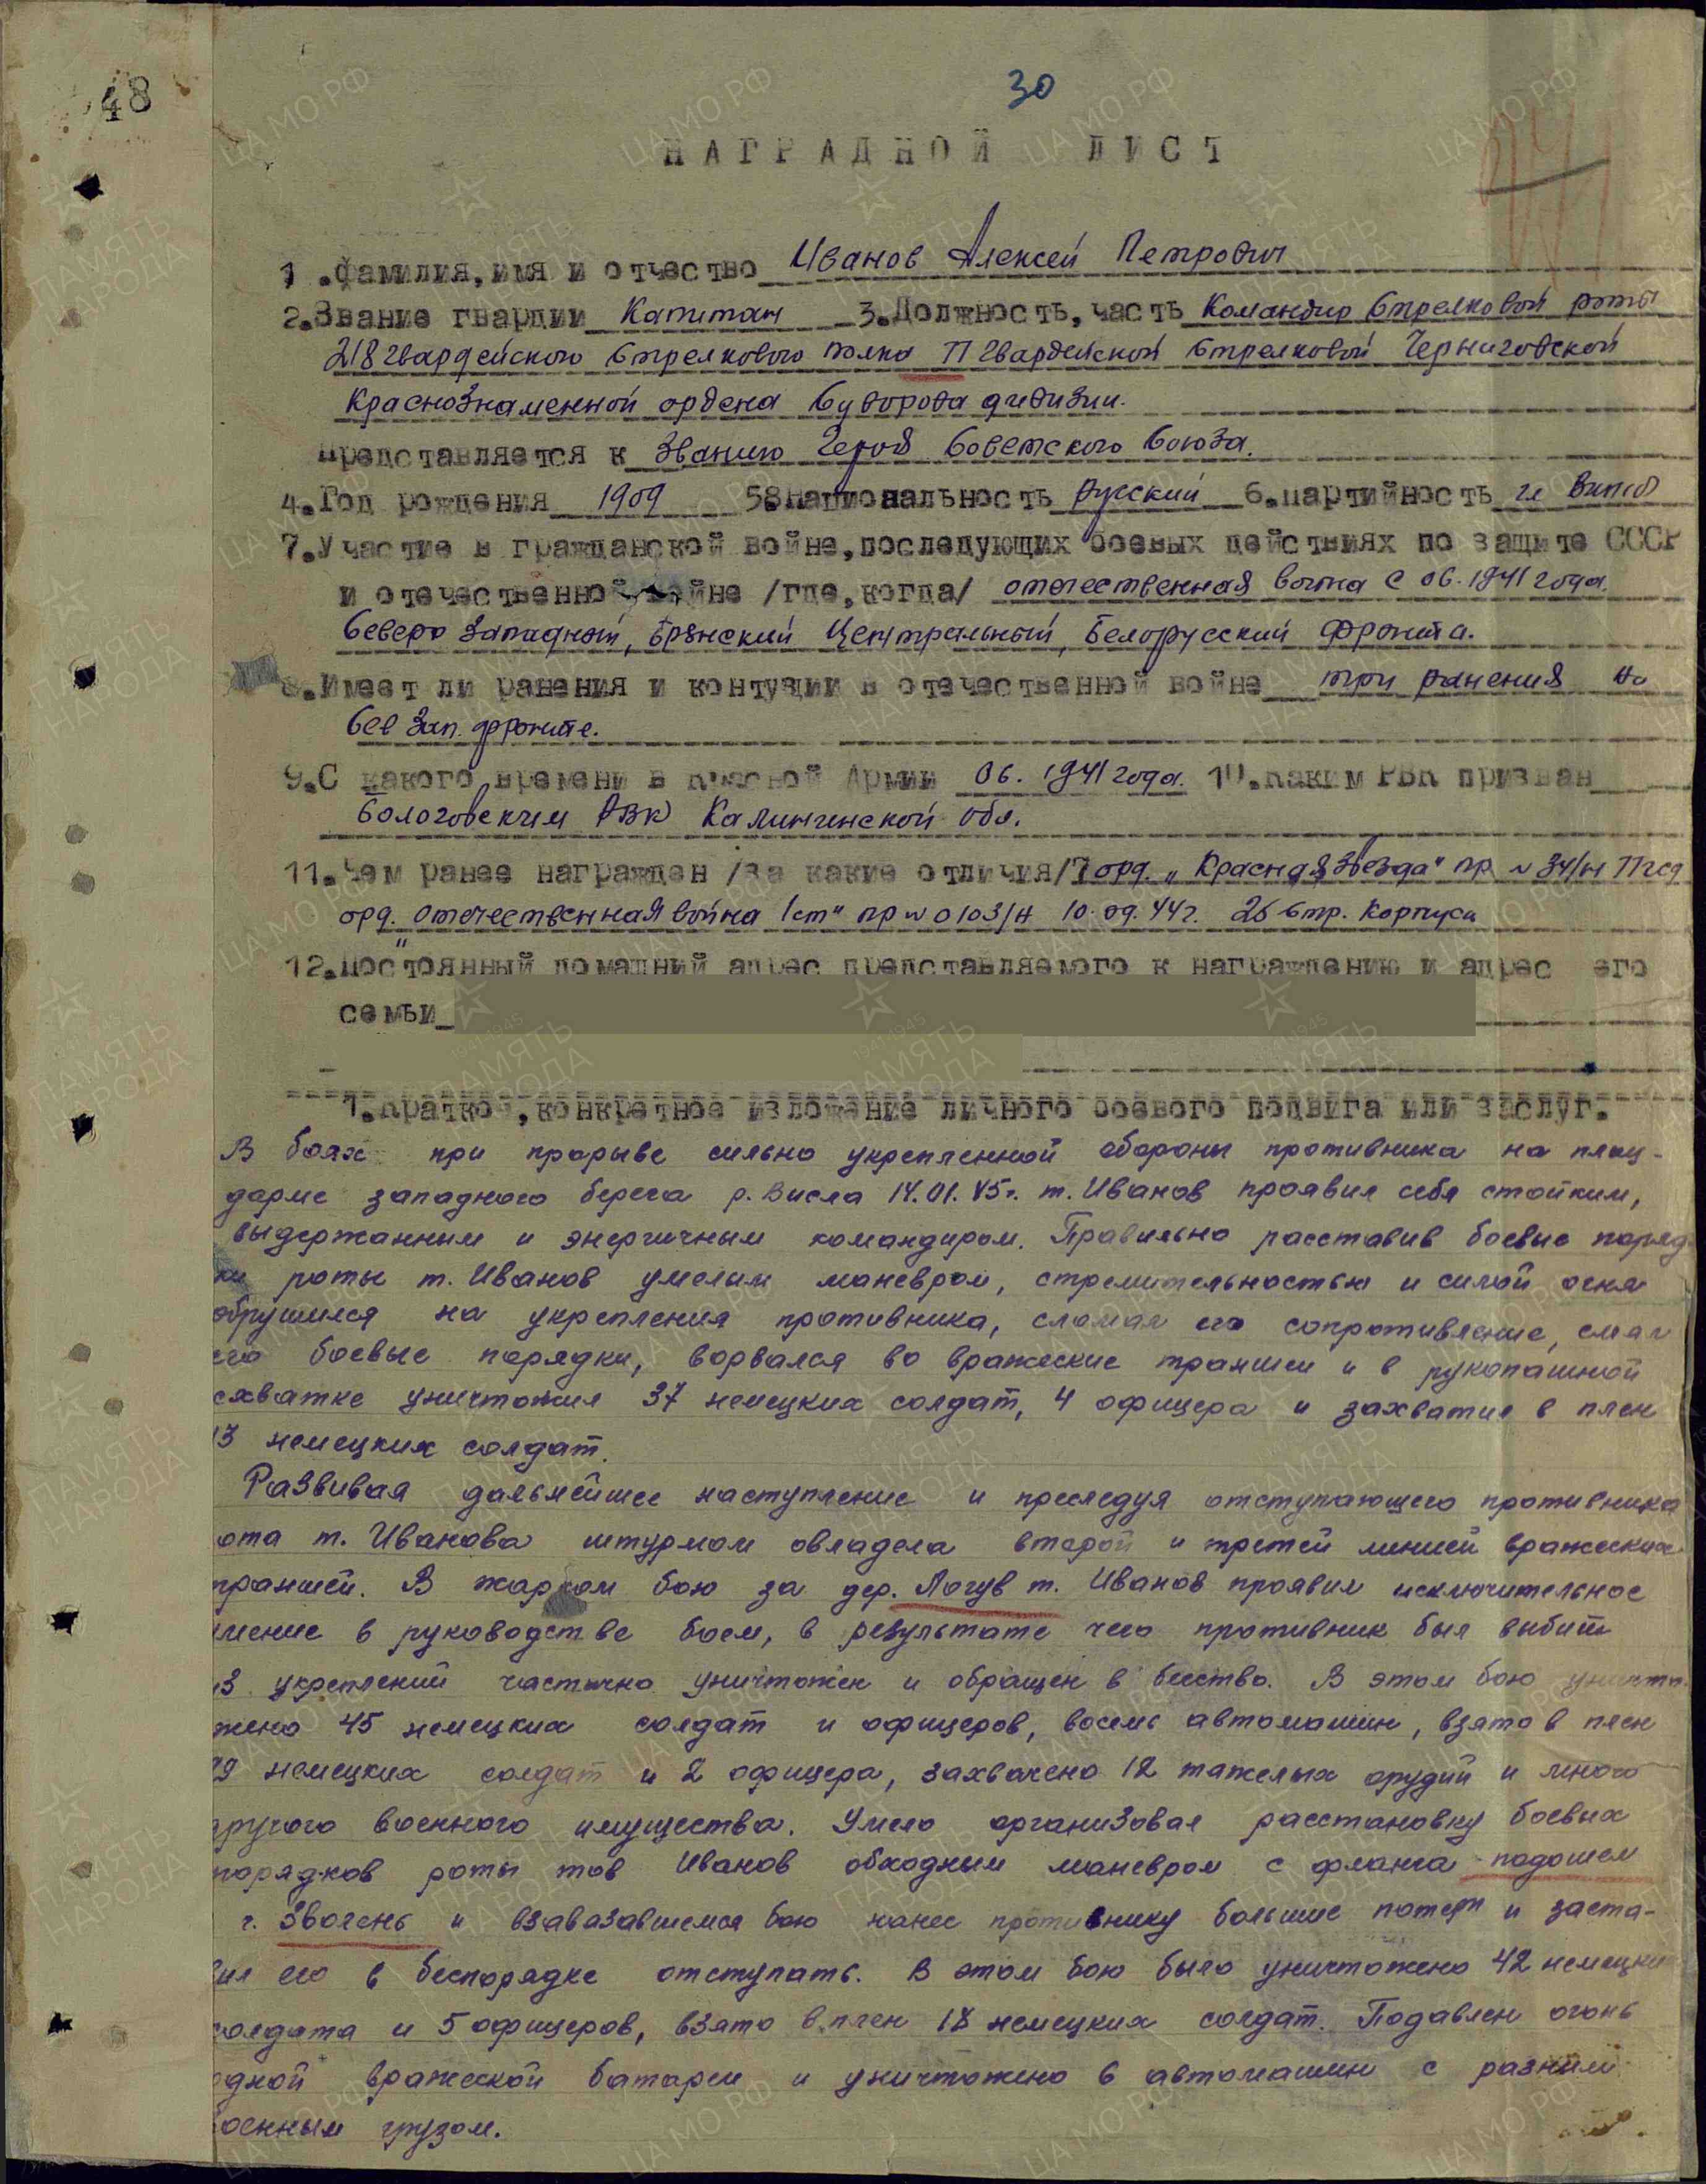 48
30
НАГРАДНОЙ ЛИСТ
1.Фамилия,имя и отчество Иванов Алексей Петрович
2.Звание гвардии Капитан 3.Должность,часть Командир Стрелковой роты
218 гвардейского Стрелкового полка 77 гвардейской Стрелковой Черниговской
Краснознаменной ордена Суворова дивизии.
Представляется к званию Героя Советского Союза.
4.Год рождения 1909 5.Национальность русский 6.партийность чл ВКП(б)
7.Участие в гражданской войне,последующих боевых действиях по защите СССР
и отечественной войне /где,когда/ отечественная война с 06.1941 года.
Северо Западный, Брянский Центральный, Белорусский фронта.
8.Имеет ли ранения и контузии в отечественной войне три ранения на
Сев Зап. фронте.
9.С какого времени в Красной Армии 06. 1941 года. 10.Каким РВК призван
Бологовским РВК Калининской обл.
11.Чем ранее награжден /за какие отличия/ орд. „Красная Звезда" пр № 34/н 77 гсд
орд. „Отечественная война 1ст" пр № 0103/н 10.09.44г. 25 Стр. Корпуса
12.Постоянный домашний адрес представляемого к награждению и адрес его
семьи
1.Краткое,конкретное изложение личного боевого подвига или заслуг.
В боях при прорыве сильно укрепленной обороны противника на плац-
дарме западного берега р. Висла 14.01.45г. т. Иванов проявил себя стойким,
выдержанным и энергичным командиром. Правильно расставив боевые поряд
ки роты т. Иванов умелым маневром, стремительностью и силой огня
обрушился на укрепления противника, сломал его сопротивление, смял
его боевые порядки, ворвался во вражеские траншеи и в рукопашной
схватке уничтожил 37 немецких солдат, 4 офицера и захватил в плен
13 немецких солдат.
Развивая дальнейшее наступление и преследуя отступающего противника
ота т. Иванова штурмом овладела второй и третей линией вражеских
траншей. В жарком бою за дер. Логув т. Иванов проявил исключительное
мение в руководстве боем, в результате чего противник был выбит
из укреплений частично уничтожен и обращен в бегство. В этом бою уничто
жено 45 немецких солдат и офицеров, восемь автомашин, взято в плен
немецких солдат и 2 офицера, захвачено 12 тяжелых орудий и много
другого военного имущества. Умело организовал расстановку боевых
порядков роты тов Иванов обходным маневром с фланга подошел
г. Зволень и взавязавшемся бою нанес противнику большие потери и заста-
вил его в беспорядке отступать. В этом бою было уничтожено 42 немецки
солдата и 5 офицеров, взято в плен 18 немецких солдат. Подавлен огонь
одной вражеской батареи и уничтожено 6 автомашин с разним
военным грузом.